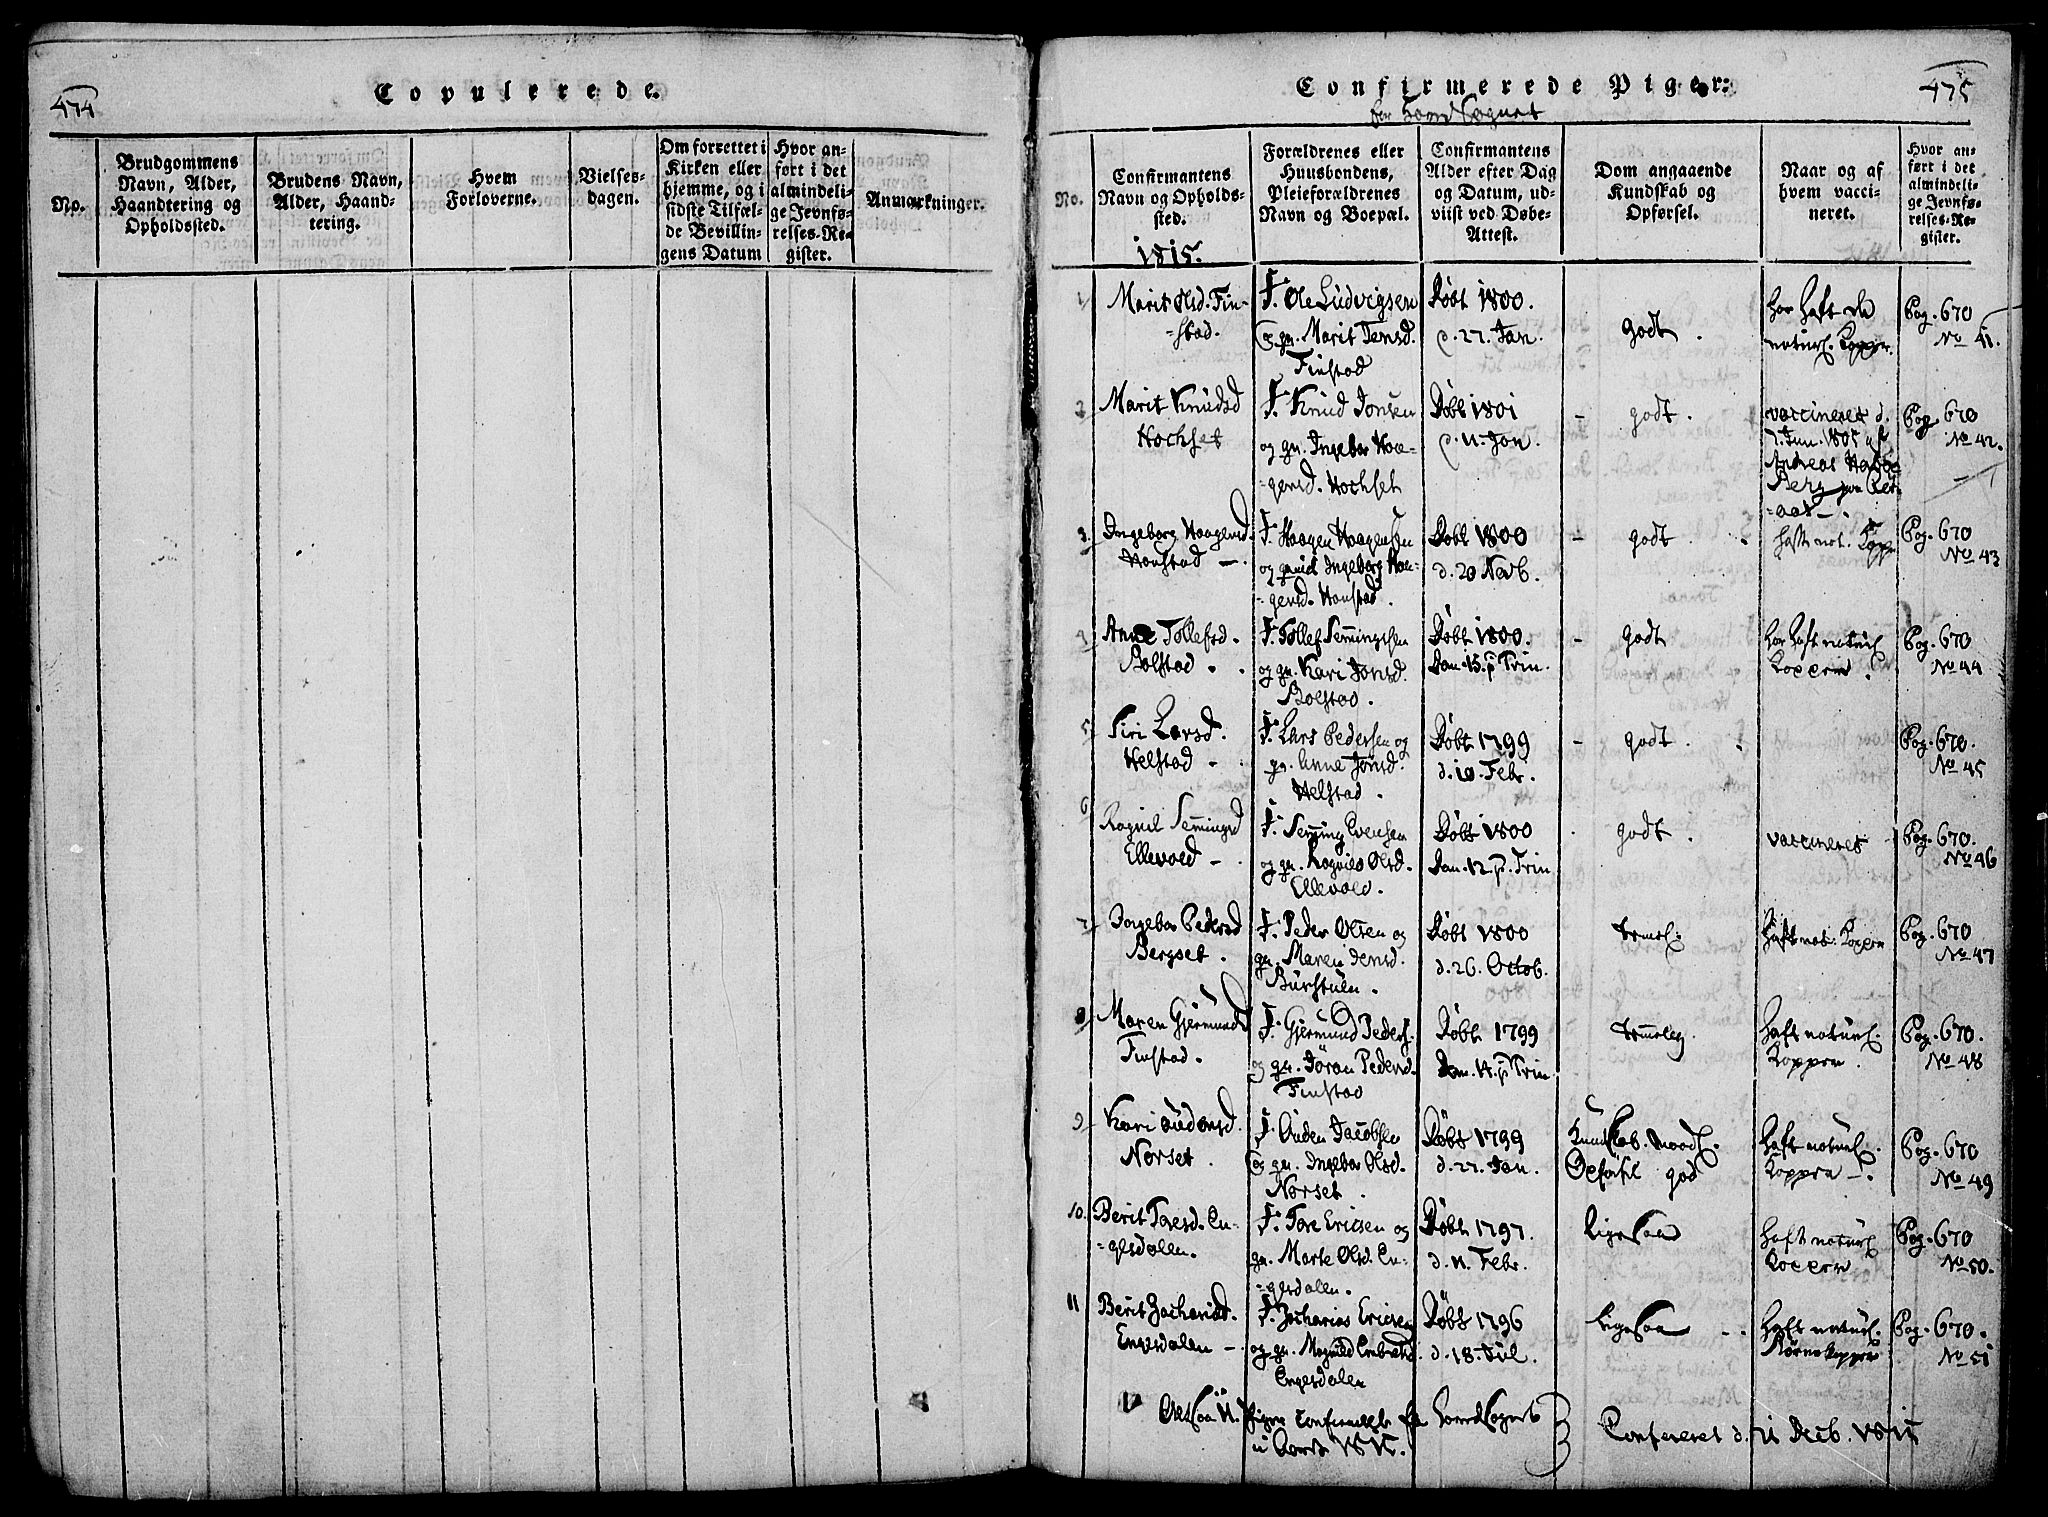 474
Copulerede.
No.
Brudgommens
Navn, Alder,
Haandtering og
Opholdssted.
Brudens Navn,
Alder, Haand-
tering.
Hvem
Forloverne.
Vielses-
dagen.
Om forrettet i
Kirken eller
hjemme, og i
sidste Tilfæl-
de Bevillin-
gens Datum
Hvor an-
ført i det
almindeli-
ge Jevnfø-
relses-Re-
gister.
Anmærkninger.
Confirmerede Piger:
475
for Hoved Sognet
No.
Confirmantens
Navn og Opholds-
sted.
1815.
Forældrenes eller
Huusbondens,
Pleieforældrenes
Navn og Boepæl.
Confirmantens
Alder efter Dag
og Datum, ud-
viist ved Døbe-
Attest.
Dom angaaende
Kundskab og
Opførsel.
Naar og af
hvem vacci-
neret.
Hvor an-
ført i det
almindeli-
ge Jevnfø-
relses-Re-
gister.
1
Marit Olsd. Fin-
=stad.
F. Ole Ludvigsen
og qv. Marit Jensd.
Finstad
Døbt 1800.
d. 27. Jan.
godt.
har haft de
naturl. Kopper.
Pag. 670
No 41.
2
Marit Knudsd
Hochset
F. Knud Jonsen
og qv. Ingebor Hoe-
=gensd. Hochset
Døbt 1801
d. 11. Jan.
- godt.
vaccineret d.
7. Jun. 1805 af
Andreas
Berg
Pag. 670
No 42.
3.
Ingeborg Haagensd.
Honstad -.
F. Haagen Haagensen
og qvind Ingeborg Hoe-
=gensd. Honstad.
Døbt 1800
d. 20 Novb.
- godt.
haft nat. Kopper
Pag. 670
No 43
Anne Tollefsd.
Bolstad.
F. Tollef Semmingsen
og qv. Kari Jonsd.
Bolstad.
Døbt 1800.
Dom. 15. p Trin.
- godt
har haft naturl
Kopper.
Pag. 670
No 44
5
Siri Larsd.
Helstad -
F. Lars Pedersen og
qv. Anne Jonsd.
Helstad.
Døbt 1799
d. 10. Febr.
- godt.
Pag. 670.
No 45
6
Ragnil Semmingsd
Ellevold -
F. Semming Evensen
og qv. Ragnild Olsd.
Ellevold.
Døbt 1800
Dom. 12. p. Trin
godt.
vaccineret
Pag. 670.
No 46
7
Ingebor Pedersd
Bergset.
F. Peder Olsen og
qv. Maren Jensd.
Burstulen.
Døbt 1800
d. 26. Octob.
haft nat. Kopper
Pag. 670
No 47
8
Maren Gjermunds
Finstad.
F. Gjermund Peders.
og qv. Joran Pedersd.
Finstad
Døbt 1799
Dom. 14. p Trin
haft naturl.
Kopper.
Pag. 670.
No 48
9
Kari Audensd.
Norset.
F. Auden Jacobsen
og qv. Ingebor Olsd.
Norset.
Døbt 1799
d. 27. Jan.
Kundskab. maadl.
Opførsel god
haft naturl.
Kopper -.
Pag. 670
No 49
10.
Berit Toresd. En-
=gesdalen.
F. Tore Ericsen og
qv. Marte Olsd. En-
=gesdalen.
Døbt 1797.
d. 11. Febr.
ligesaa
haft naturl
Kopper
Pag. 670
No 50.
11
Berit Zachariad.
Engesdalen -.
F. Zacharias Ericsen
og qv. Magnild Embretsd
Engesdalen
Døbt 1796
d. 18. Jul.
ligesaa - .
haft naturl.
Børnekopper
Pag. 670.
No 51
Altsaa 11. Piger confirmeret fra Hoved Sognet
i Aaret 1815.
Confereret d. 11 Decb. 1815